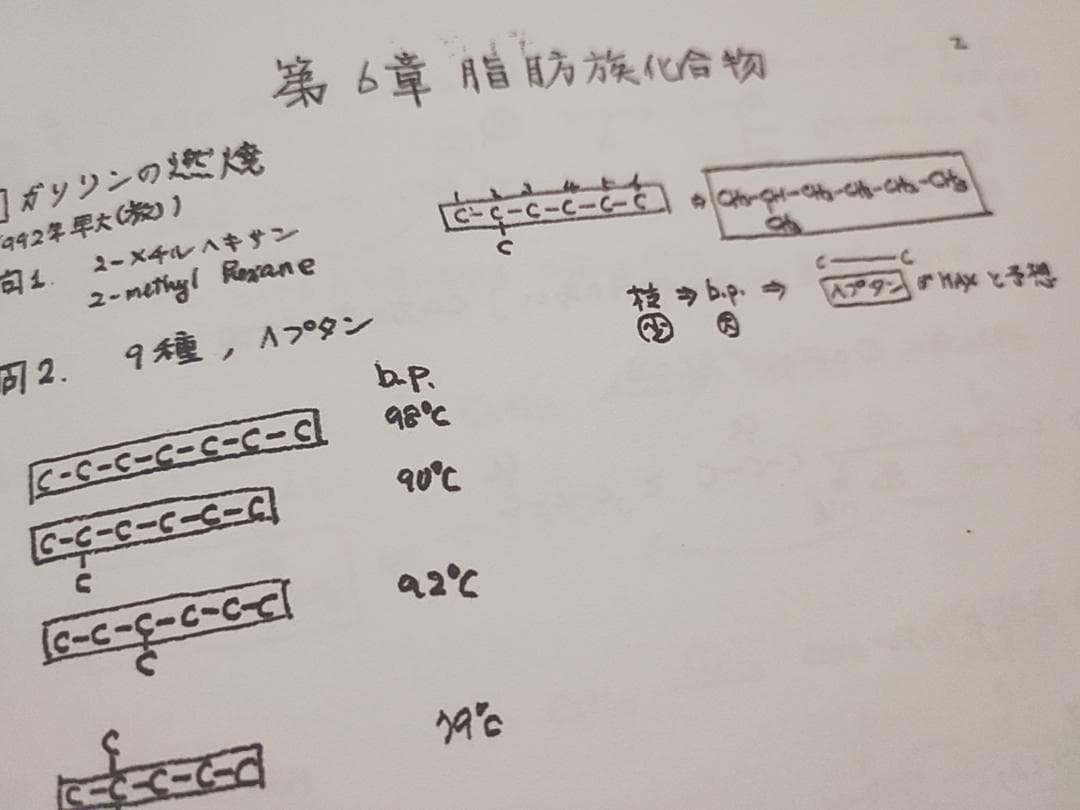 2
第6章 脂肪族化合物
] ガソリンの燃焼
1992年早大(教))
問1. 2-メチルヘキサン
2-methyl hexane
1 2 3 4 5 6
C-C-C-C-C-C
C
⇒
CH3-CH-CH2-CH2-CH2-CH3
CH3
枝 ⇒ b.p. ⇒
小 大
C——C
ヘプタン がMAXと予想
問2. 9種, ヘプタン
b.p.
C-C-C-C-C-C-C 98℃
C-C-C-C-C-C 90℃
C
C-C-C-C-C-C 92℃
C
C
C-C-C-C-C 79℃